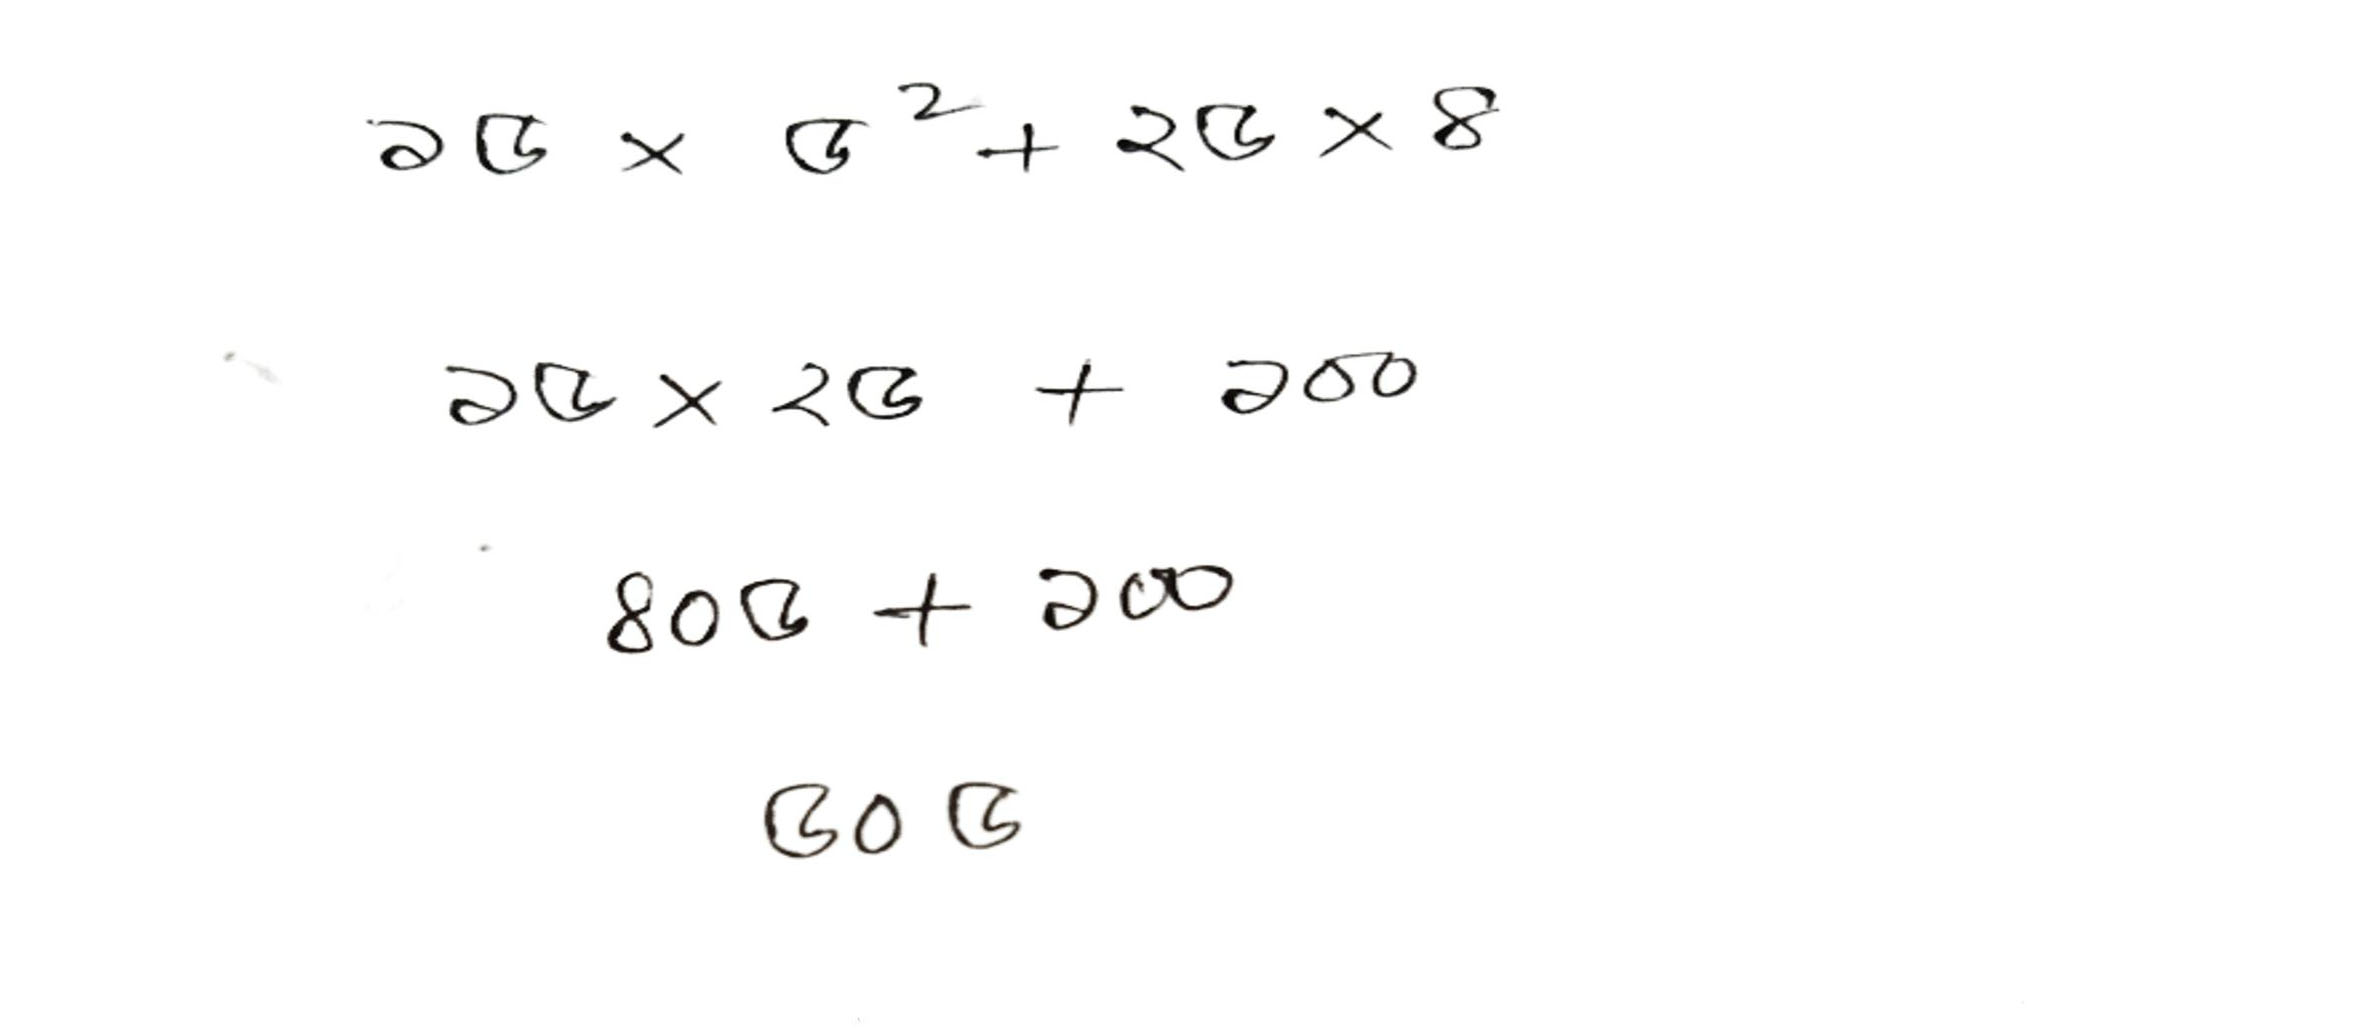 ১৫ × ৫² + ২৫ × ৪
১৫ × ২৫ + ১০০
৪০৫ + ১০০
৫০৫